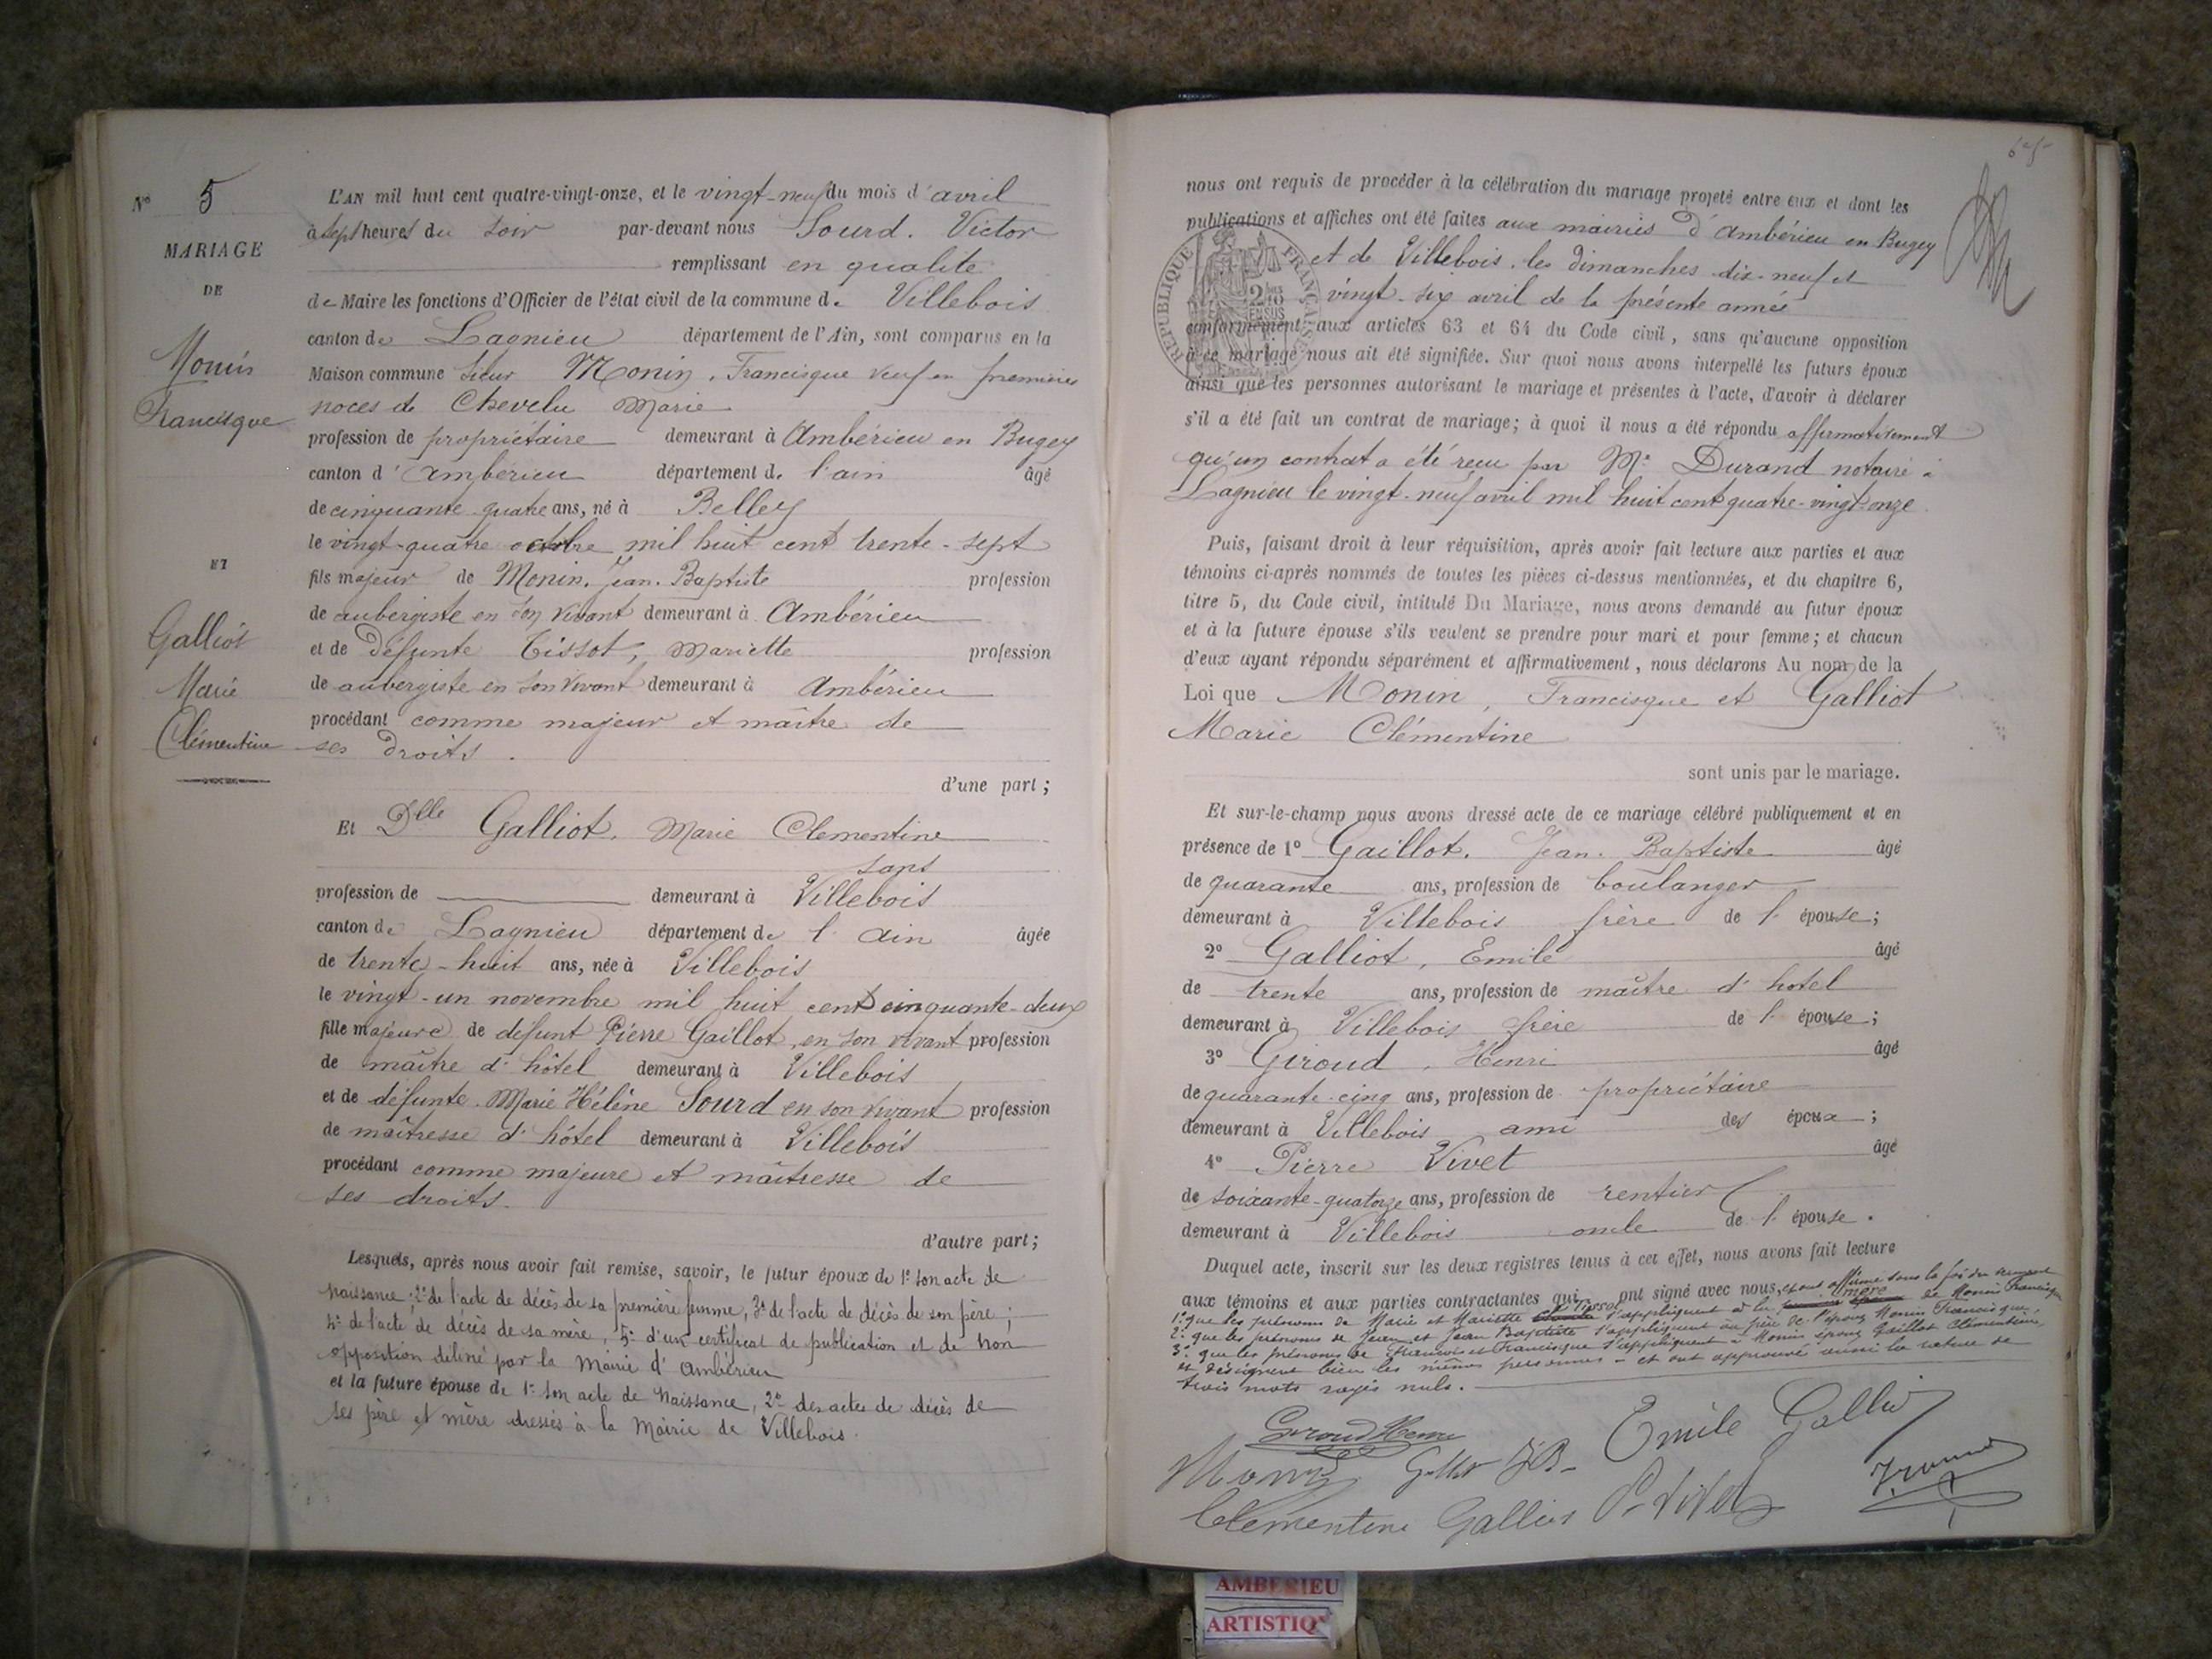 N° 5
MARIAGE
DE
Monin
Francisque
ET
Galliot
Marie
Clémentine
L'AN mil huit cent quatre-vingt-onze, et le vingt-neuf du mois d'avril
à sept heures du soir par-devant nous Sourd. Victor
remplissant en qualité
de Maire les fonctions d'Officier de l'état civil de la commune de Villebois
canton de Lagnieu département de l'Ain, sont comparus en la
Maison commune sieur Monin, Francisque veuf en premières
noces de Chevelu Marie
profession de propriétaire demeurant à Ambérieu en Bugey
canton d'Ambérieu département de l'ain âgé
de cinquante-quatre ans, né à Belley
le vingt-quatre octobre mil huit cent trente-sept
fils majeur de Monin. Jean. Baptiste profession
de aubergiste en son vivant demeurant à Ambérieu
et de Défunte Tissot, Mariette profession
de aubergiste en son vivant demeurant à Ambérieu
procédant comme majeur et maître de
ses droits.
d'une part;
Et Dlle Galliot. Marie Clementine
sans
profession de demeurant à Villebois
canton de Lagnieu département de l'Ain âgée
de trente-huit ans, née à Villebois
le vingt-un novembre mil huit cent cinquante-deux
fille majeure de défunt Pierre Gaillot, en son vivant profession
de maître d'hôtel demeurant à Villebois
et de défunte. Marie Hélène Sourd en son vivant profession
de maîtresse d'hôtel demeurant à Villebois
procédant comme majeure et maîtresse de
ses droits.
d'autre part;
Lesquels, après nous avoir fait remise, savoir, le futur époux de 1° son acte de
naissance; 2° de l'acte de décès de sa première femme, 3° de l'acte de décès de son père;
4° de l'acte de décès de sa mère, 5° d'un certificat de publication et de non
opposition délivré par la Mairie d'Ambérieu
et la future épouse de 1° son acte de naissance, 2° des actes de décès de
ses père et mère dressés à la Mairie de Villebois.
nous ont requis de procéder à la célébration du mariage projeté entre eux et dont les
publications et affiches ont été faites aux mairies d'Ambérieu en Bugey
et de Villebois. les dimanches dix-neuf et
vingt-six avril de la présente année
conformément aux articles 63 et 64 du Code civil, sans qu'aucune opposition
à ce mariage nous ait été signifiée. Sur quoi nous avons interpellé les futurs époux
ainsi que les personnes autorisant le mariage et présentes à l'acte, d'avoir à déclarer
s'il a été fait un contrat de mariage; à quoi il nous a été répondu affirmativement
qu'un contrat a été reçu par Me Durand notaire à
Lagnieu le vingt-neuf avril mil huit cent quatre-vingt-onze
RÉPUBLIQUE FRANÇAISE
Puis, faisant droit à leur réquisition, après avoir fait lecture aux parties et aux
témoins ci-après nommés de toutes les pièces ci-dessus mentionnées, et du chapitre 6,
titre 5, du Code civil, intitulé Du Mariage, nous avons demandé au futur époux
et à la future épouse s'ils veulent se prendre pour mari et pour femme; et chacun
d'eux ayant répondu séparément et affirmativement, nous déclarons Au nom de la
Loi que Monin, Francisque et Galliot
Marie Clémentine
sont unis par le mariage.
Et sur-le-champ nous avons dressé acte de ce mariage célébré publiquement et en
présence de 1° Gaillot. Jean. Baptiste âgé
de quarante ans, profession de boulanger
demeurant à Villebois frère de l'épouse;
2° Galliot, Emile âgé
de trente ans, profession de maître d'hotel
demeurant à Villebois frère de l'épouse;
3° Giroud, Henri âgé
de quarante-cinq ans, profession de propriétaire
demeurant à Villebois ami des époux;
4° Pierre Vivet âgé
de soixante-quatorze ans, profession de rentier
demeurant à Villebois oncle de l'épouse.
Duquel acte, inscrit sur les deux registres tenus à cet effet, nous avons fait lecture
aux témoins et aux parties contractantes qui ont signé avec nous, et ont affirmé sous la foi du serment
1° que les prénoms de Marie et Mariette Tissot s'appliquent à la mère de Monin Francisque
2° que les prénoms de Jean et Jean Baptiste s'appliquent au père de l'époux Monin Francisque,
3° que les prénoms de François et Francisque s'appliquent à Monin époux Gaillot Clémentine,
et désignent bien les mêmes personnes - et ont approuvé aussi la rature de
trois mots rayés nuls.
Giroud Henri
Emile Galliot
Monin
JB-
Clémentine Galliot
P. Vivet
AMBERIEU
ARTISTIQ